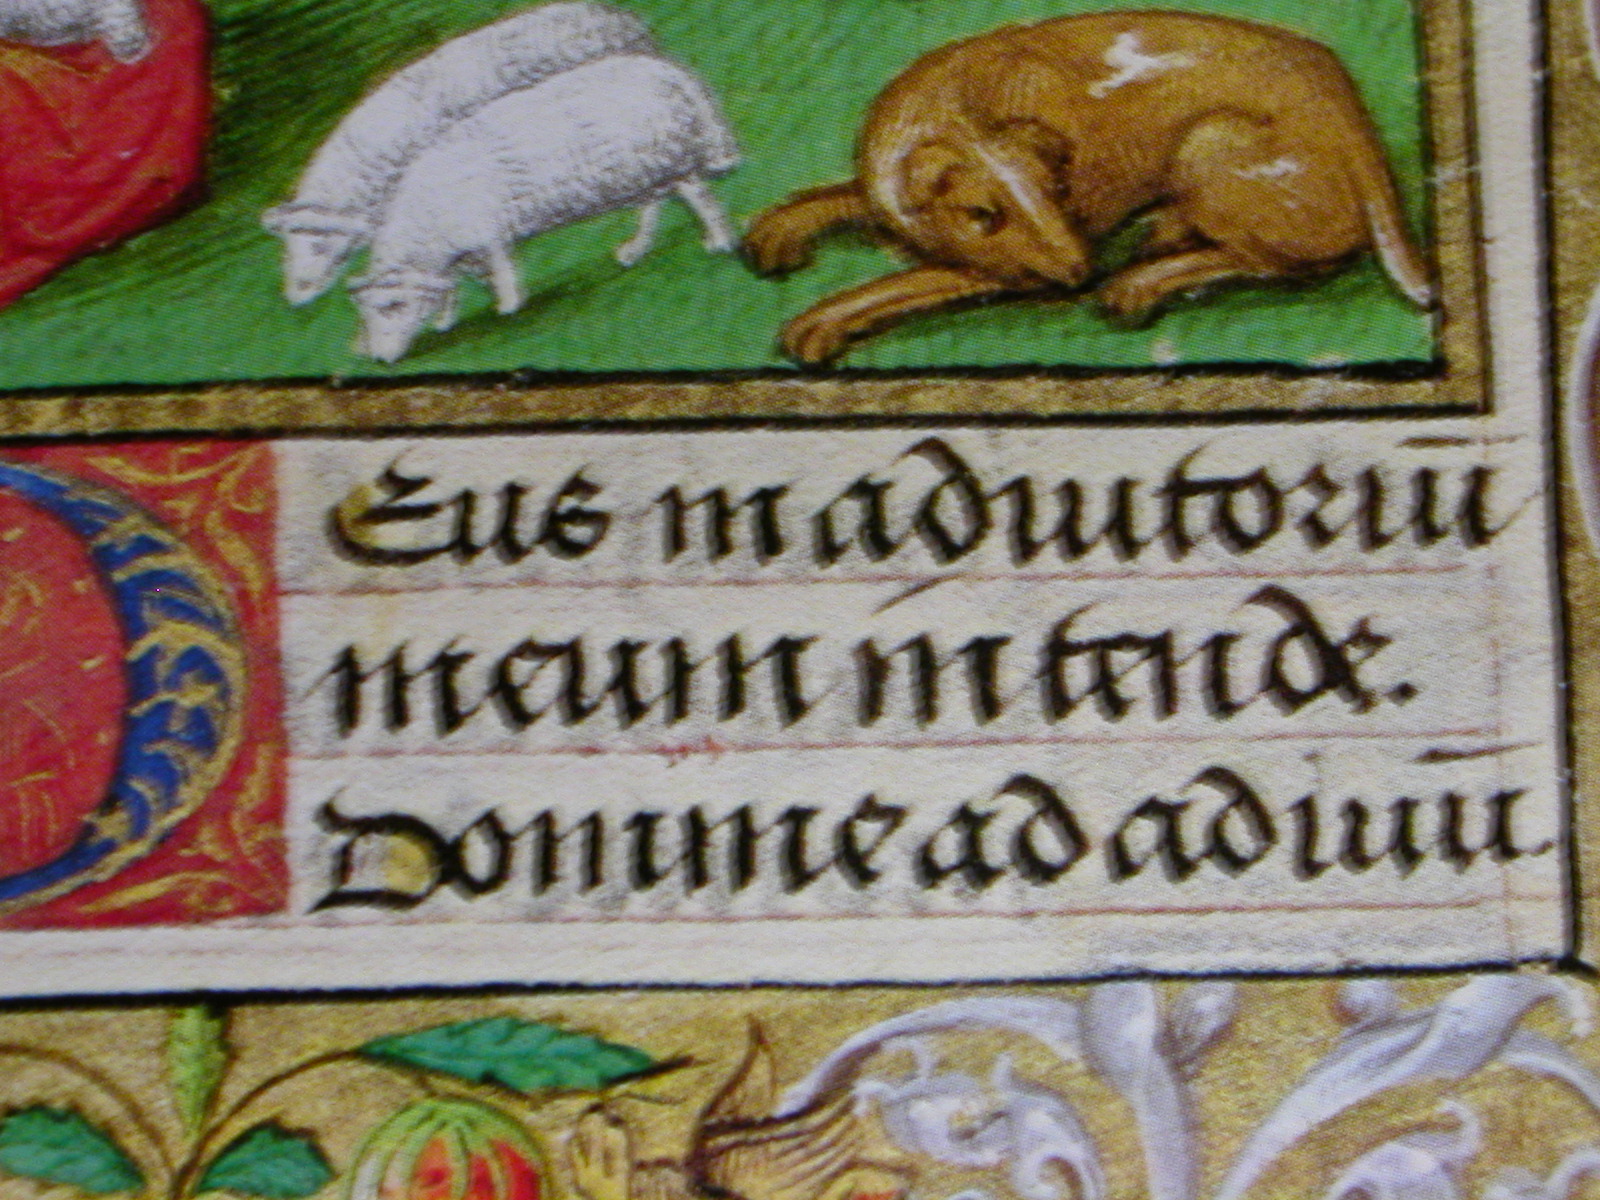 DEus in adiutoriū
meum intende.
Domine ad adiuū